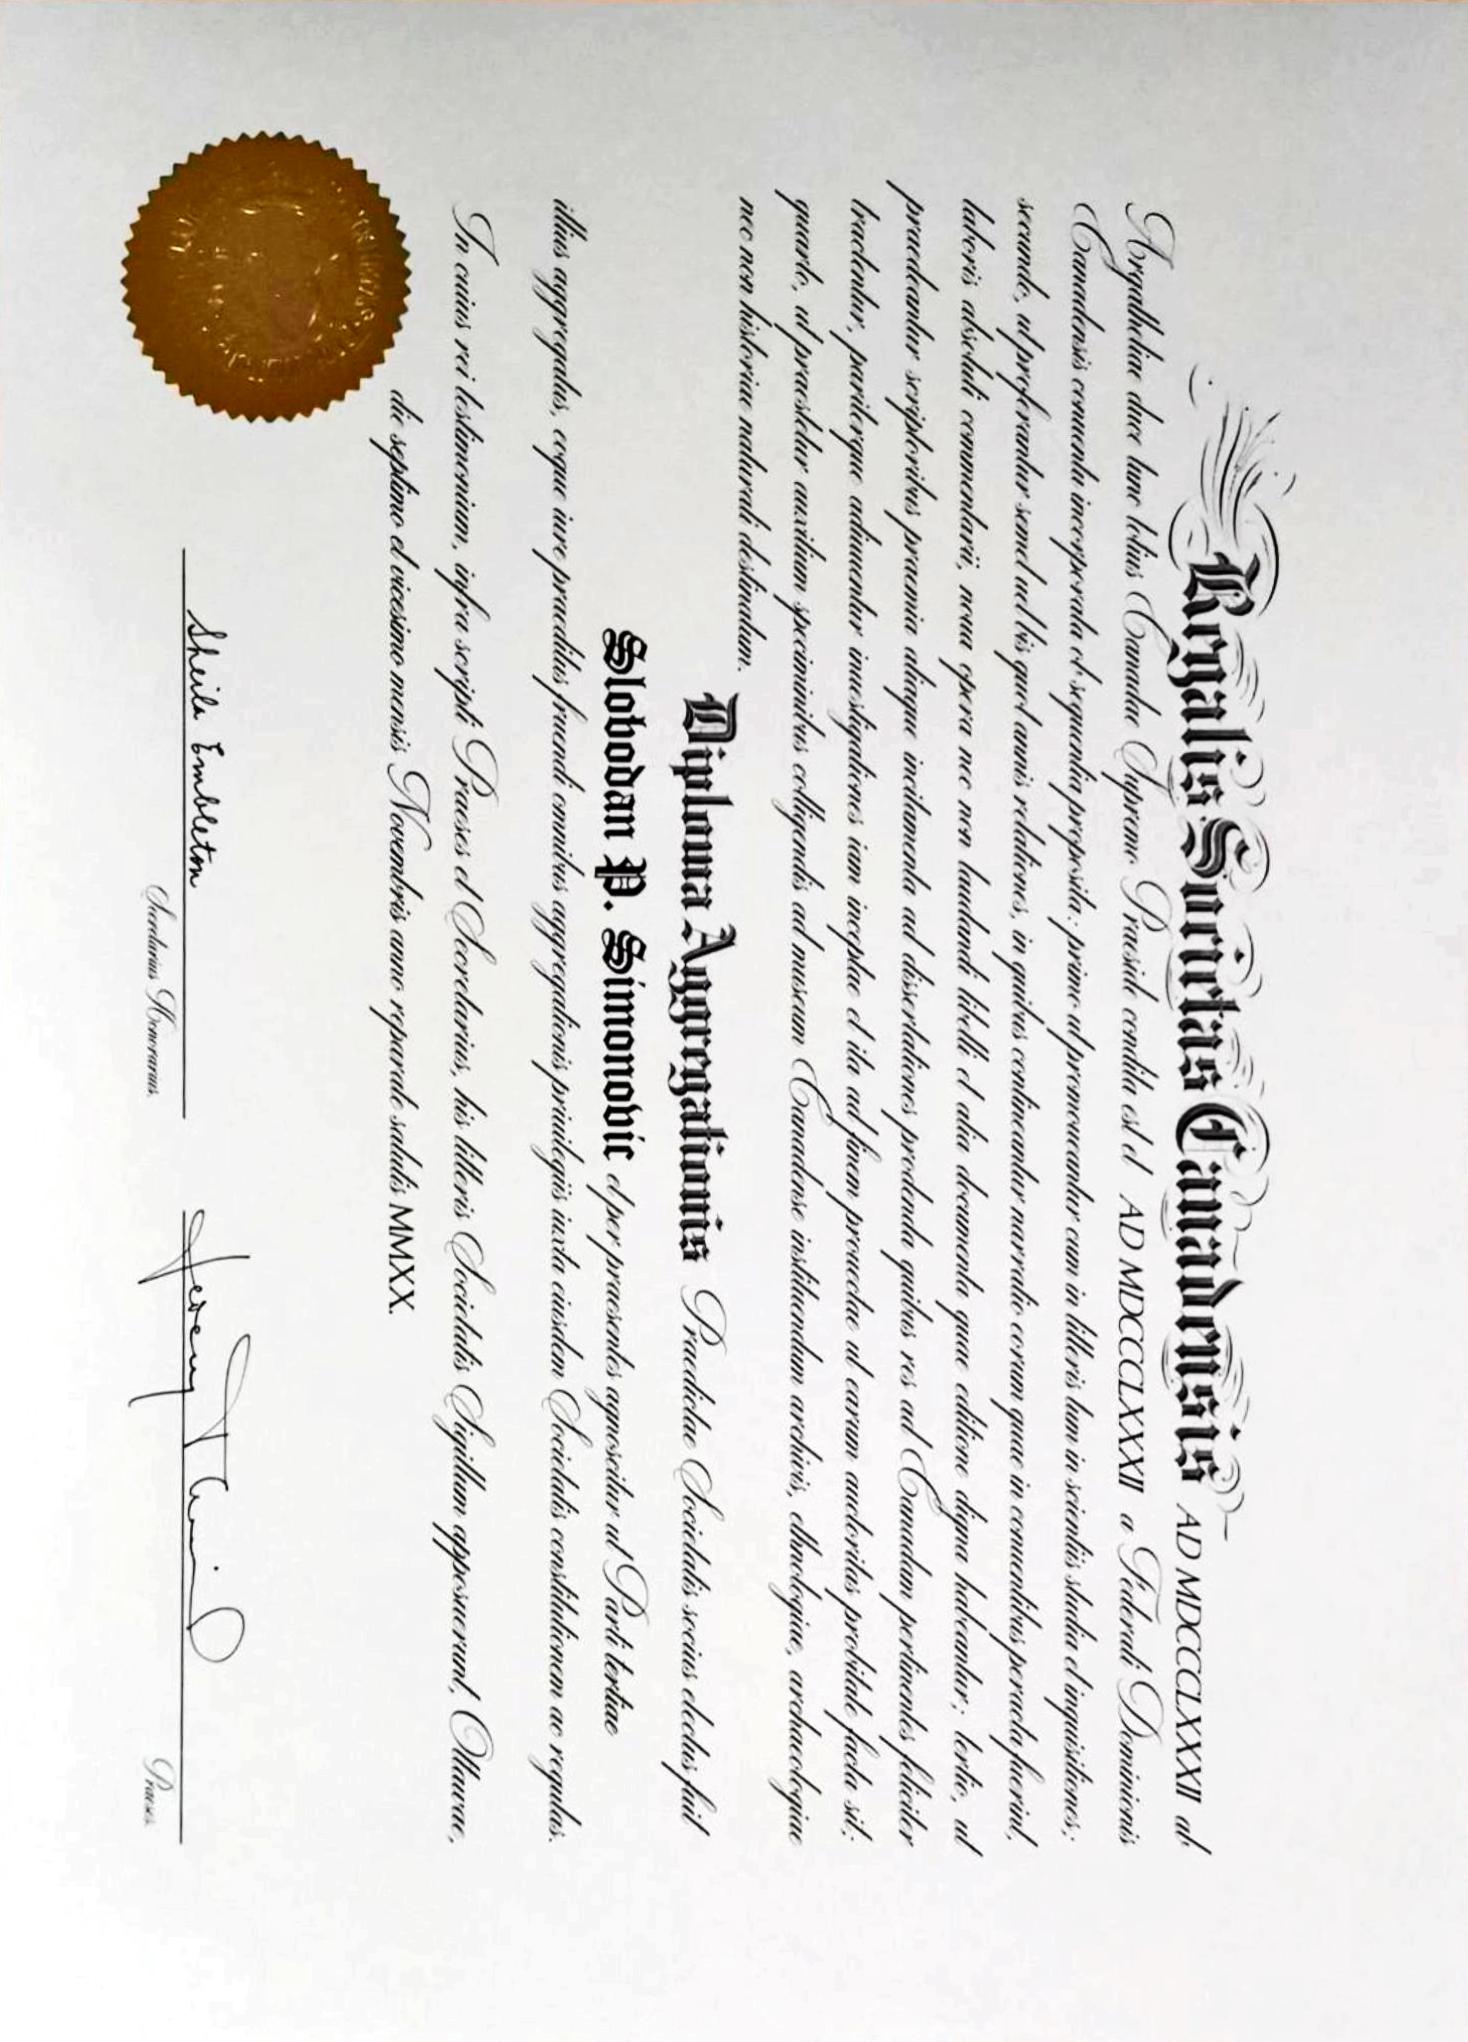 Regalis Societas Canadensis AD MDCCCLXXXII ab
Argatheliae duce tunc totius Canadae Supremo Praeside condita est et AD MDCCCLXXXII a Federali Dominionis
Canadensis conventu incorporata et sequentia proposita: primo ut promoveantur cum in litteris tum in scientiis studia et inquisitiones;
secundo, ut proferantur semel vel bis quot annis relationes, in quibus contineantur narratio eorum quae in conventibus peracta fuerint,
laboris absoluti commentarii, nova opera nec non laudandi libelli et alia documenta quae editione digna habeantur; tertio, ut
praedeantur scriptoribus praemia aliaque incitamenta ad dissertationes prodenda quibus res ad Canadam pertinentes feliciter
tractentur, pariterque adiuventur investigationes iam inceptae et ita ad finem provectae ut earum auctoritas probitate facta sit;
quarto, ut praestetur auxilium speciminibus colligendis ad museum Canadense instituendum archivis, ethnologiae, archaeologiae
nec non historiae naturali destinatum.
Diploma Aggregationis Praedictae Societatis socius electus fuit
Slobodan P. Simonovic et per praesentes agnoscitur ut Parti tertiae
illius aggregatus, eoque iure praeditus fruendi omnibus aggregationis privilegiis iuxta eiusdem Societatis constitutionem ac regulas.
In cuius rei testimonium, infra scripti Praeses et Secretarius, his litteris Societatis Sigillum apposuerunt, Ottavae,
die septimo et vicesimo mensis Novembris anno reparate salutis MMXX.
Sheila Embleton
Jeremy
Secretarius Honorarius
Praeses